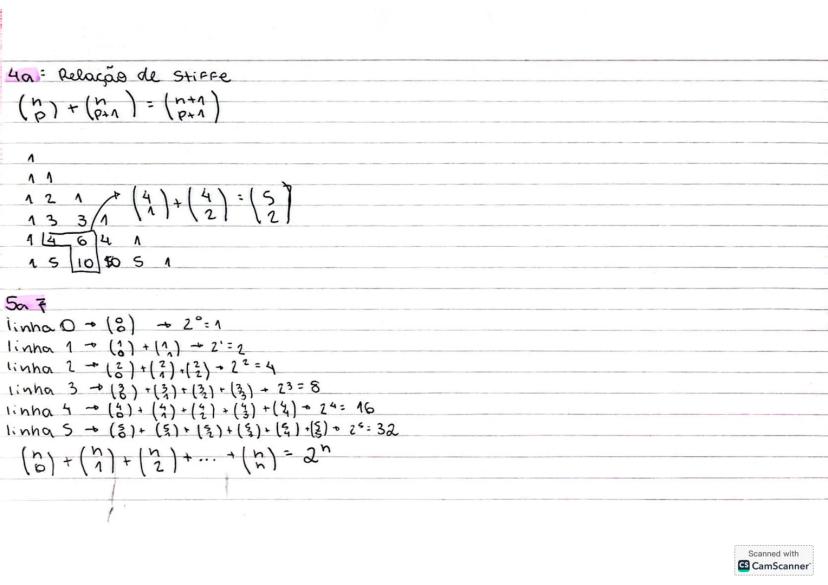 4a: Relação de Stiffe
(n p) + (n p+1) = (n+1 p+1)
1
1 1
1 2 1 → (4 1) + (4 2) = (5 2)
1 3 3 1
1 4 6 4 1
1 5 10 10 5 1
5a 7
linha 0 → (0 0) → 2⁰ = 1
linha 1 → (1 0) + (1 1) → 2¹ = 2
linha 2 → (2 0) + (2 1) + (2 2) → 2² = 4
linha 3 → (3 0) + (3 1) + (3 2) + (3 3) → 2³ = 8
linha 4 → (4 0) + (4 1) + (4 2) + (4 3) + (4 4) → 2⁴ = 16
linha 5 → (5 0) + (5 1) + (5 2) + (5 3) + (5 4) + (5 5) → 2⁵ = 32
(n 0) + (n 1) + (n 2) + ... + (n n) = 2ⁿ
Scanned with
CS CamScanner